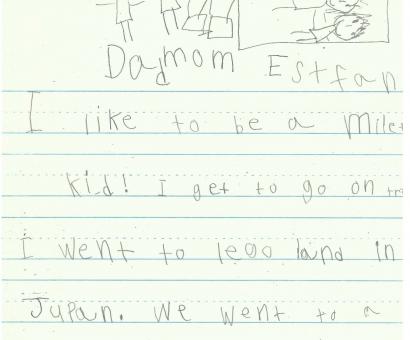 Dad mom Estfan
I like to be a
kid! I get to go on
I went to lego land in
Jupan. We went to a